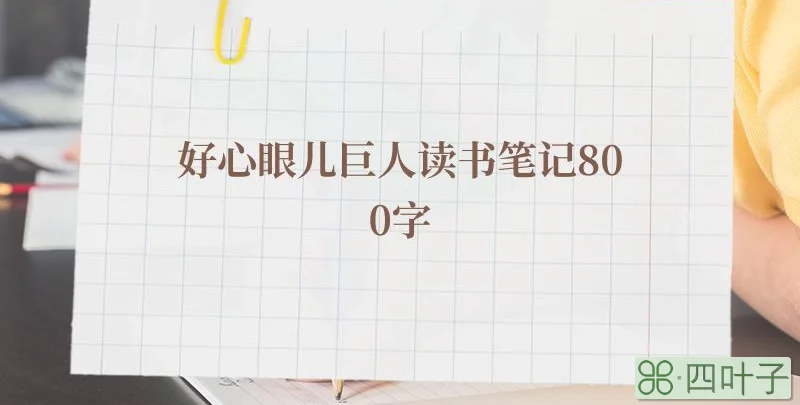 好心眼儿巨人读书笔记80
0字
四叶子